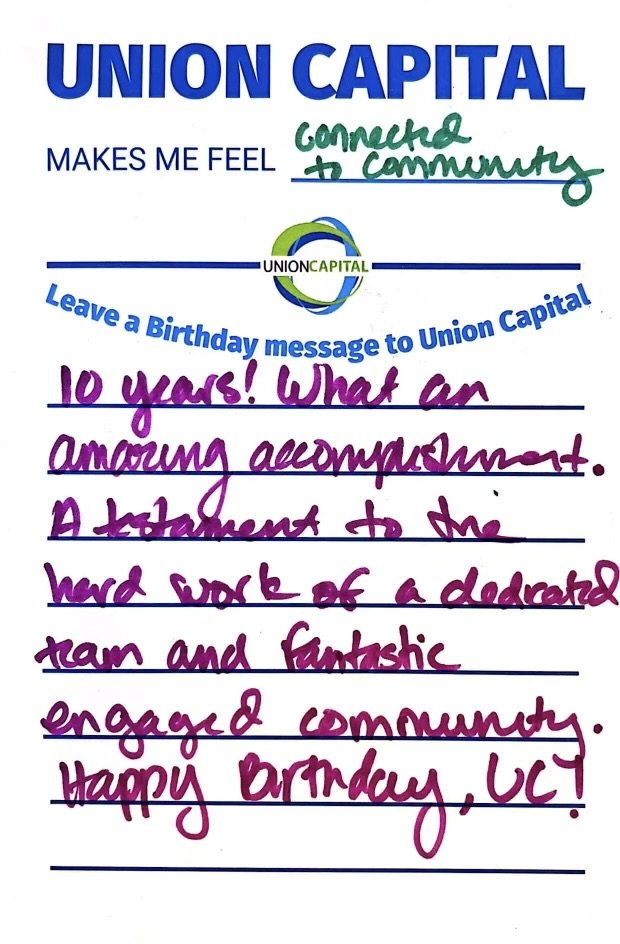 UNION CAPITAL
MAKES ME FEEL connected
to community
UNIONCAPITAL
Leave a Birthday message to Union Capital
10 years! What an
amazing accomplishment.
A testament to the
hard work of a dedicated
team and fantastic
engaged community.
Happy Birthday, UC!